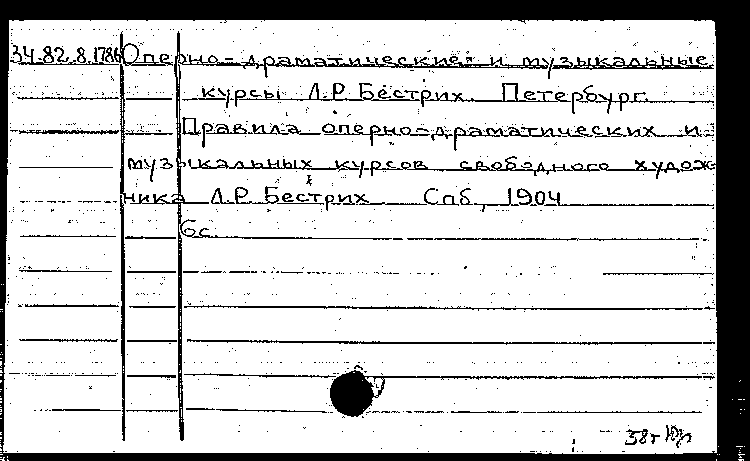 34.82.8.1786 Оперно-драматические и музыкальные
курсы Л.Р. Бестрих. Петербург.
Правила оперно-драматических и
музыкальных курсов свободного худож-
ника Л.Р. Бестрих Спб., 1904
6с.
58г